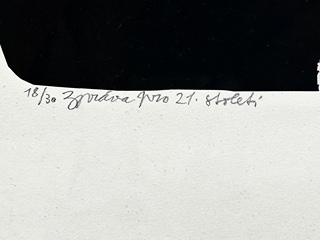 18/30 Zpráva pro 21. století